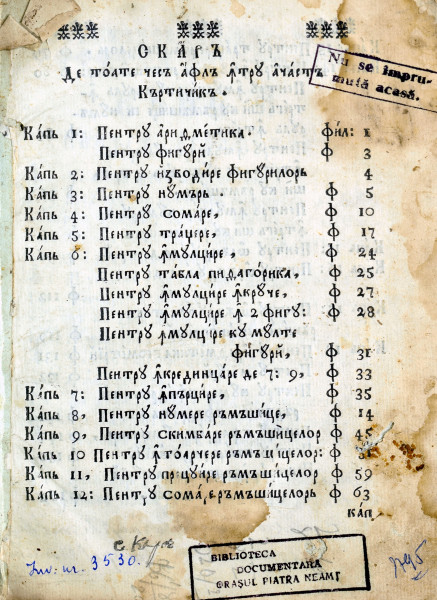 СКА́РЪ
Де то́ате чесъ а҆́флъ ꙟ҆тру ача́стъ
Кърти́чикъ.
Nu se împru-
mută acasă.
Ка́пь 1: Пентру а҆риѳме́тика. фи́л: 1
Пентру фигу́рй ф 3
Ка́пь 2: Пентру и҆зводи́ре фигу́рилорь 4
Ка́пь 3: Пентру ну́мъръ ф 5
Ка́пь 4: Пентру сома́ре, ф 10
Ка́пь 5: Пентру тра́џере, ф 17
Ка́пь 6: Пентру ꙟ҆мулци́ре, ф 24
Пентру та́бла пиѳаго́рика, ф 25
Пентру ꙟ҆мулци́ре ꙟ҆кру́че, ф 27
Пентру ꙟ҆мулци́ре ꙟ҆ 2 фигу: ф 28
Пентру ꙟ҆мулци́ре ку мулте
фигу́рй, ф 31
Пентру ꙟ҆крединца́ре де 7: 9, ф 33
Ка́пь 7: Пентру ꙟ҆пърци́ре, ф 35
Ка́пь 8, Пентру ну́мере ръмъши́це, ф 14
Ка́пь 9, Пентру скимба́ре ръмъши́целор ф 45
Ка́пь 10 Пентру ꙟ҆то́арчере ръмъши́целор: ф
Ка́пь 11, Пентру ръмъши́целор ф 59
Ка́пь 12: Пентру сома́ре ръмъши́целорь ф 63
ка́п
Inv. nr. 3530.
1795
BIBLIOTECA
DOCUMENTARA
ORAȘUL PIATRA NEAMȚ